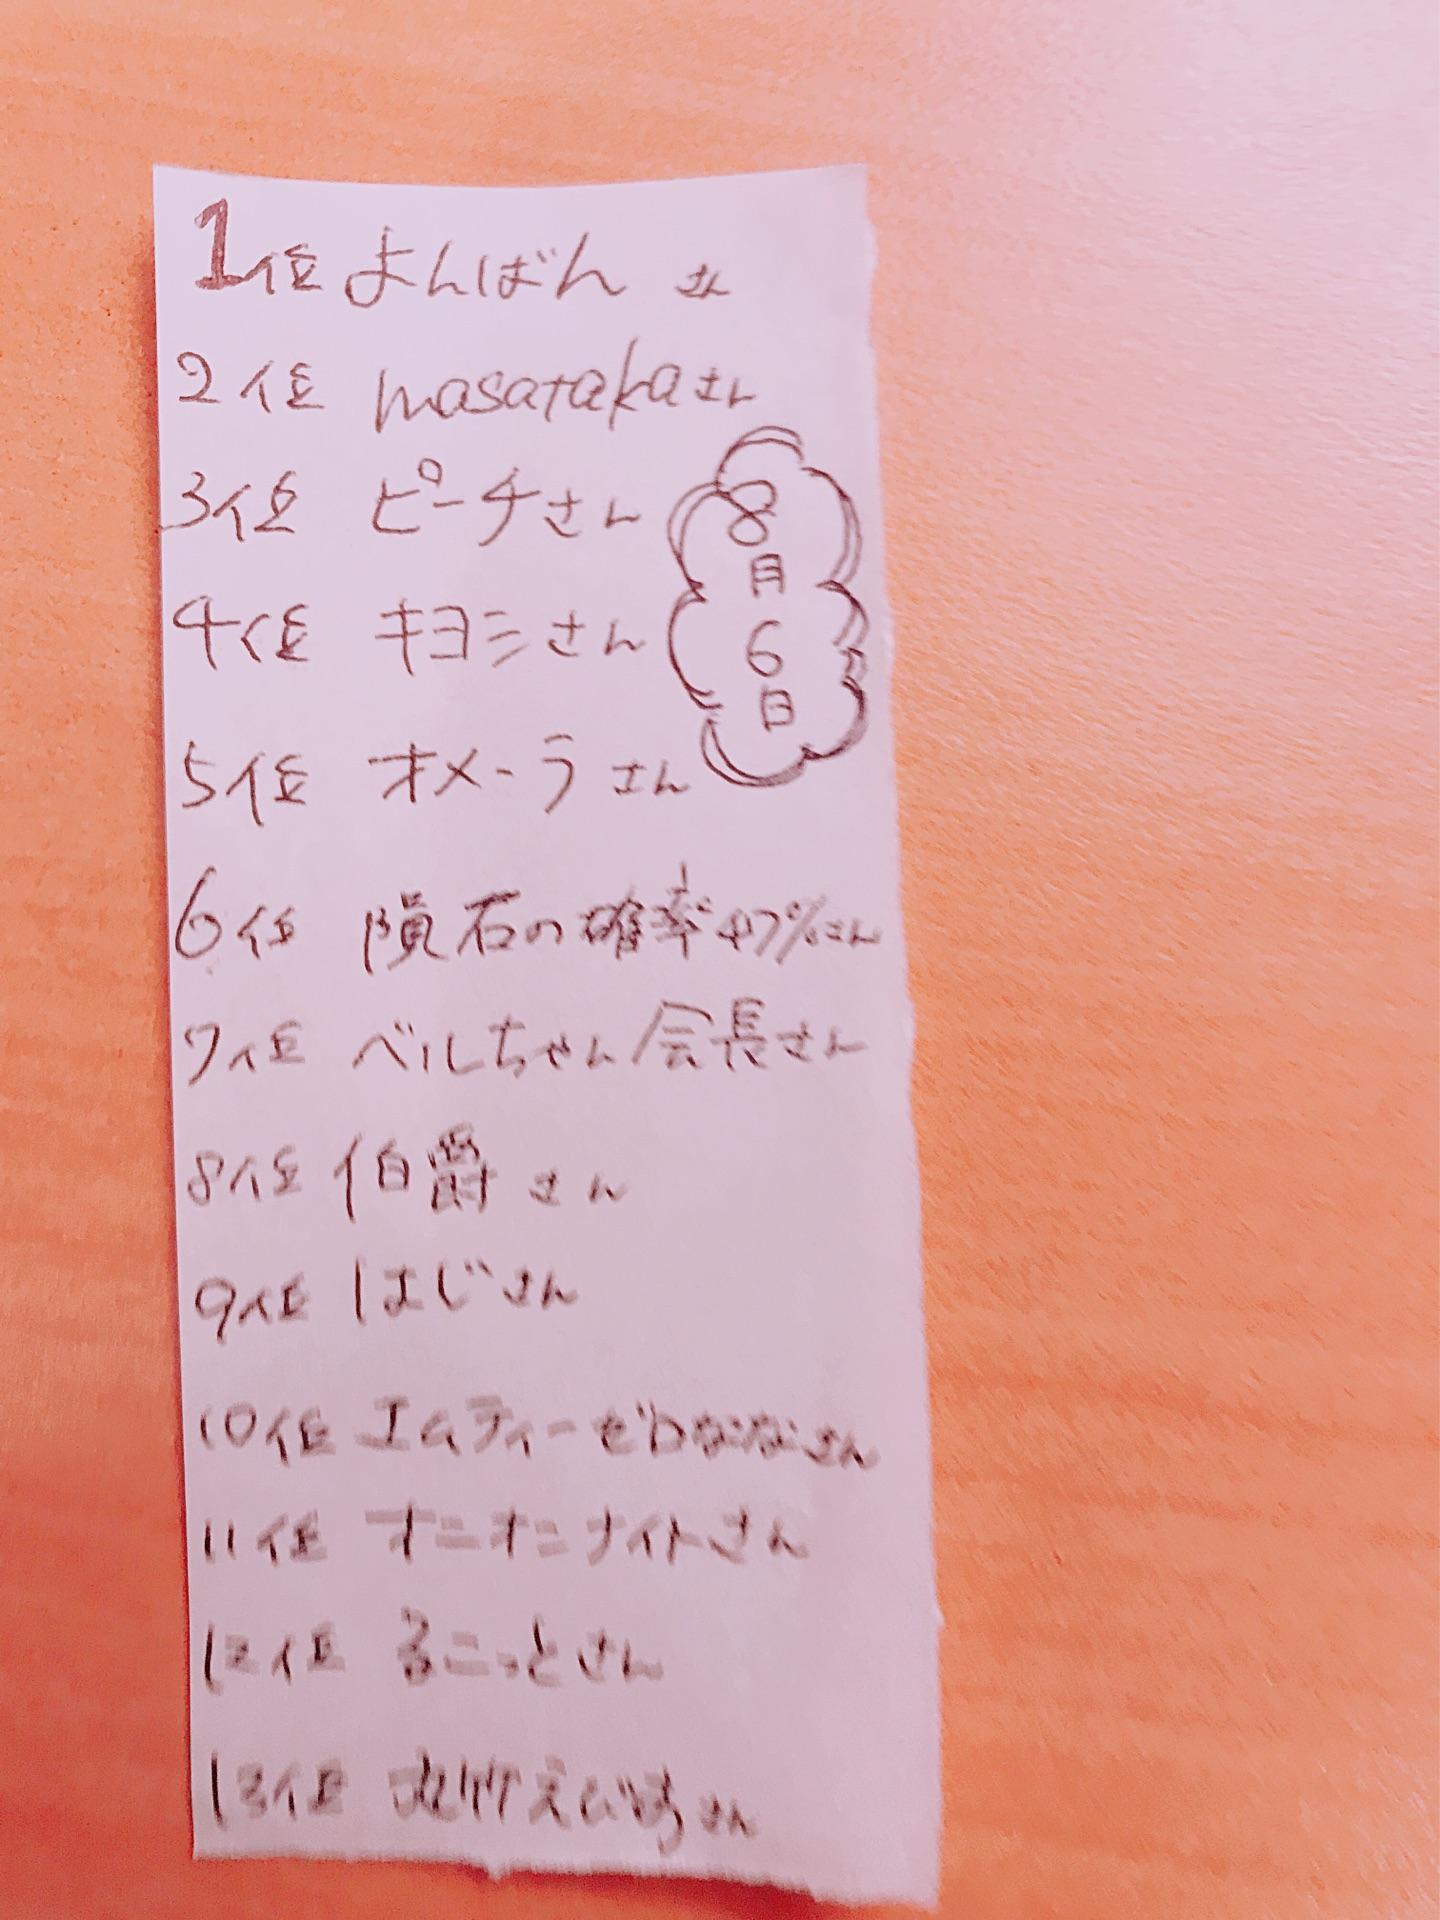 1位 よんばん さん
2位 masatakaさん
3位 ピーチさん
8
月
6
日
4位 キヨシさん
5位 オメーラさん
6位 隕石の確率47%さん
7位 ベルちゃん会長さん
8位 伯爵さん
9位 はじさん
10位 エムティーゼロななさん
11位 オニオニナイトさん
12位 るこっとさん
13位 さん